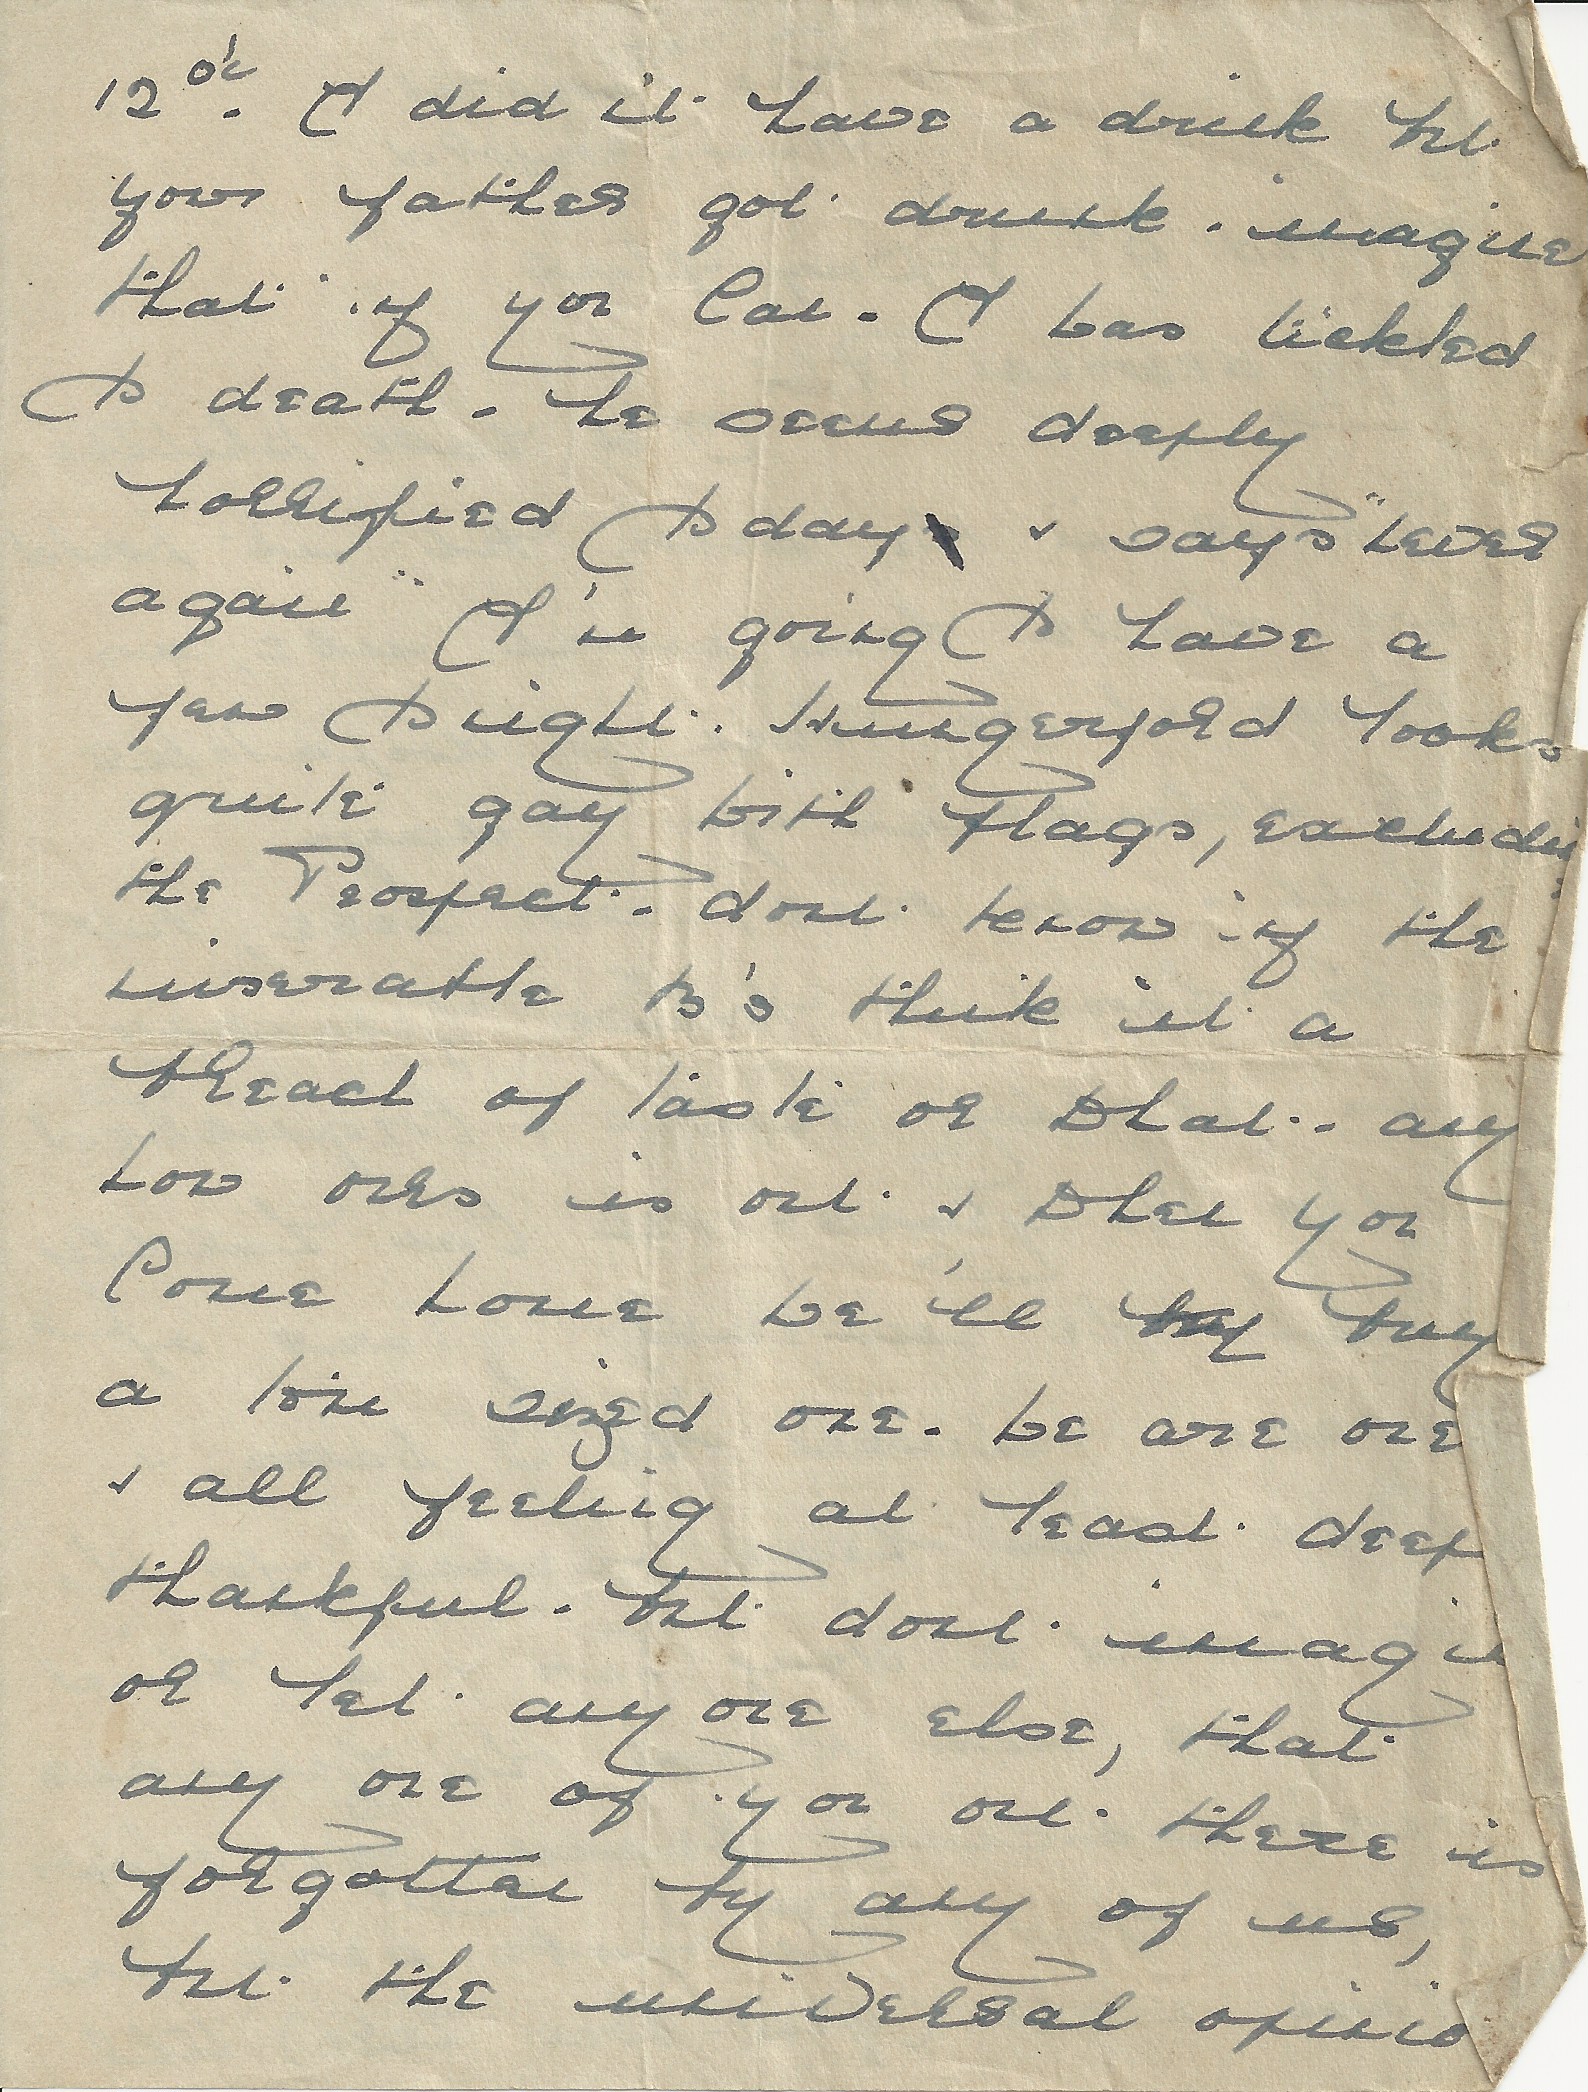 12 o'c. I did n't have a drink but
your father got drunk. imagine
that if you can. I was tickled
to death. he seems deeply
horrified today & says "never
again" I'm going to have a
few to night. Hungerford looks
quite gay with flags, excludin
the Prospect. dont know if the
miserable b's think it a
breach of taste or what. any
how ours is out & when you
come home we'll buy buy
a sized one. we are one
& all feeling at least deep
thankful. but dont imagin
or let any one else, that
any one of you out there is
forgotten by any of us,
but the universal opinio